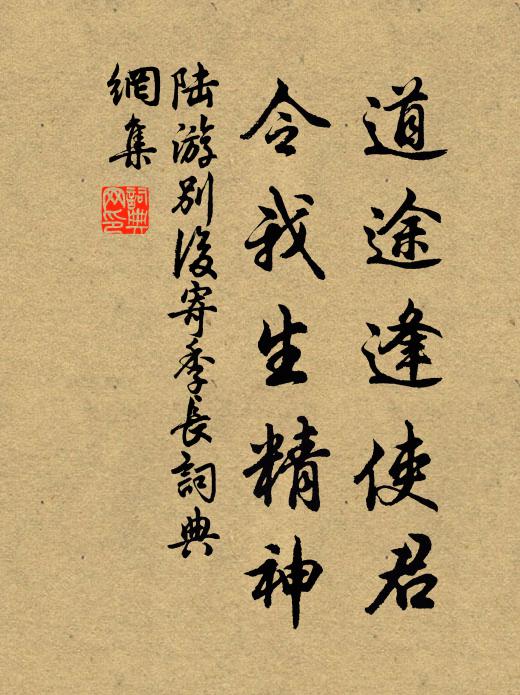 道途逢使君
令我生精神
陆游别後寄季長詞典
網集
詞典
网印